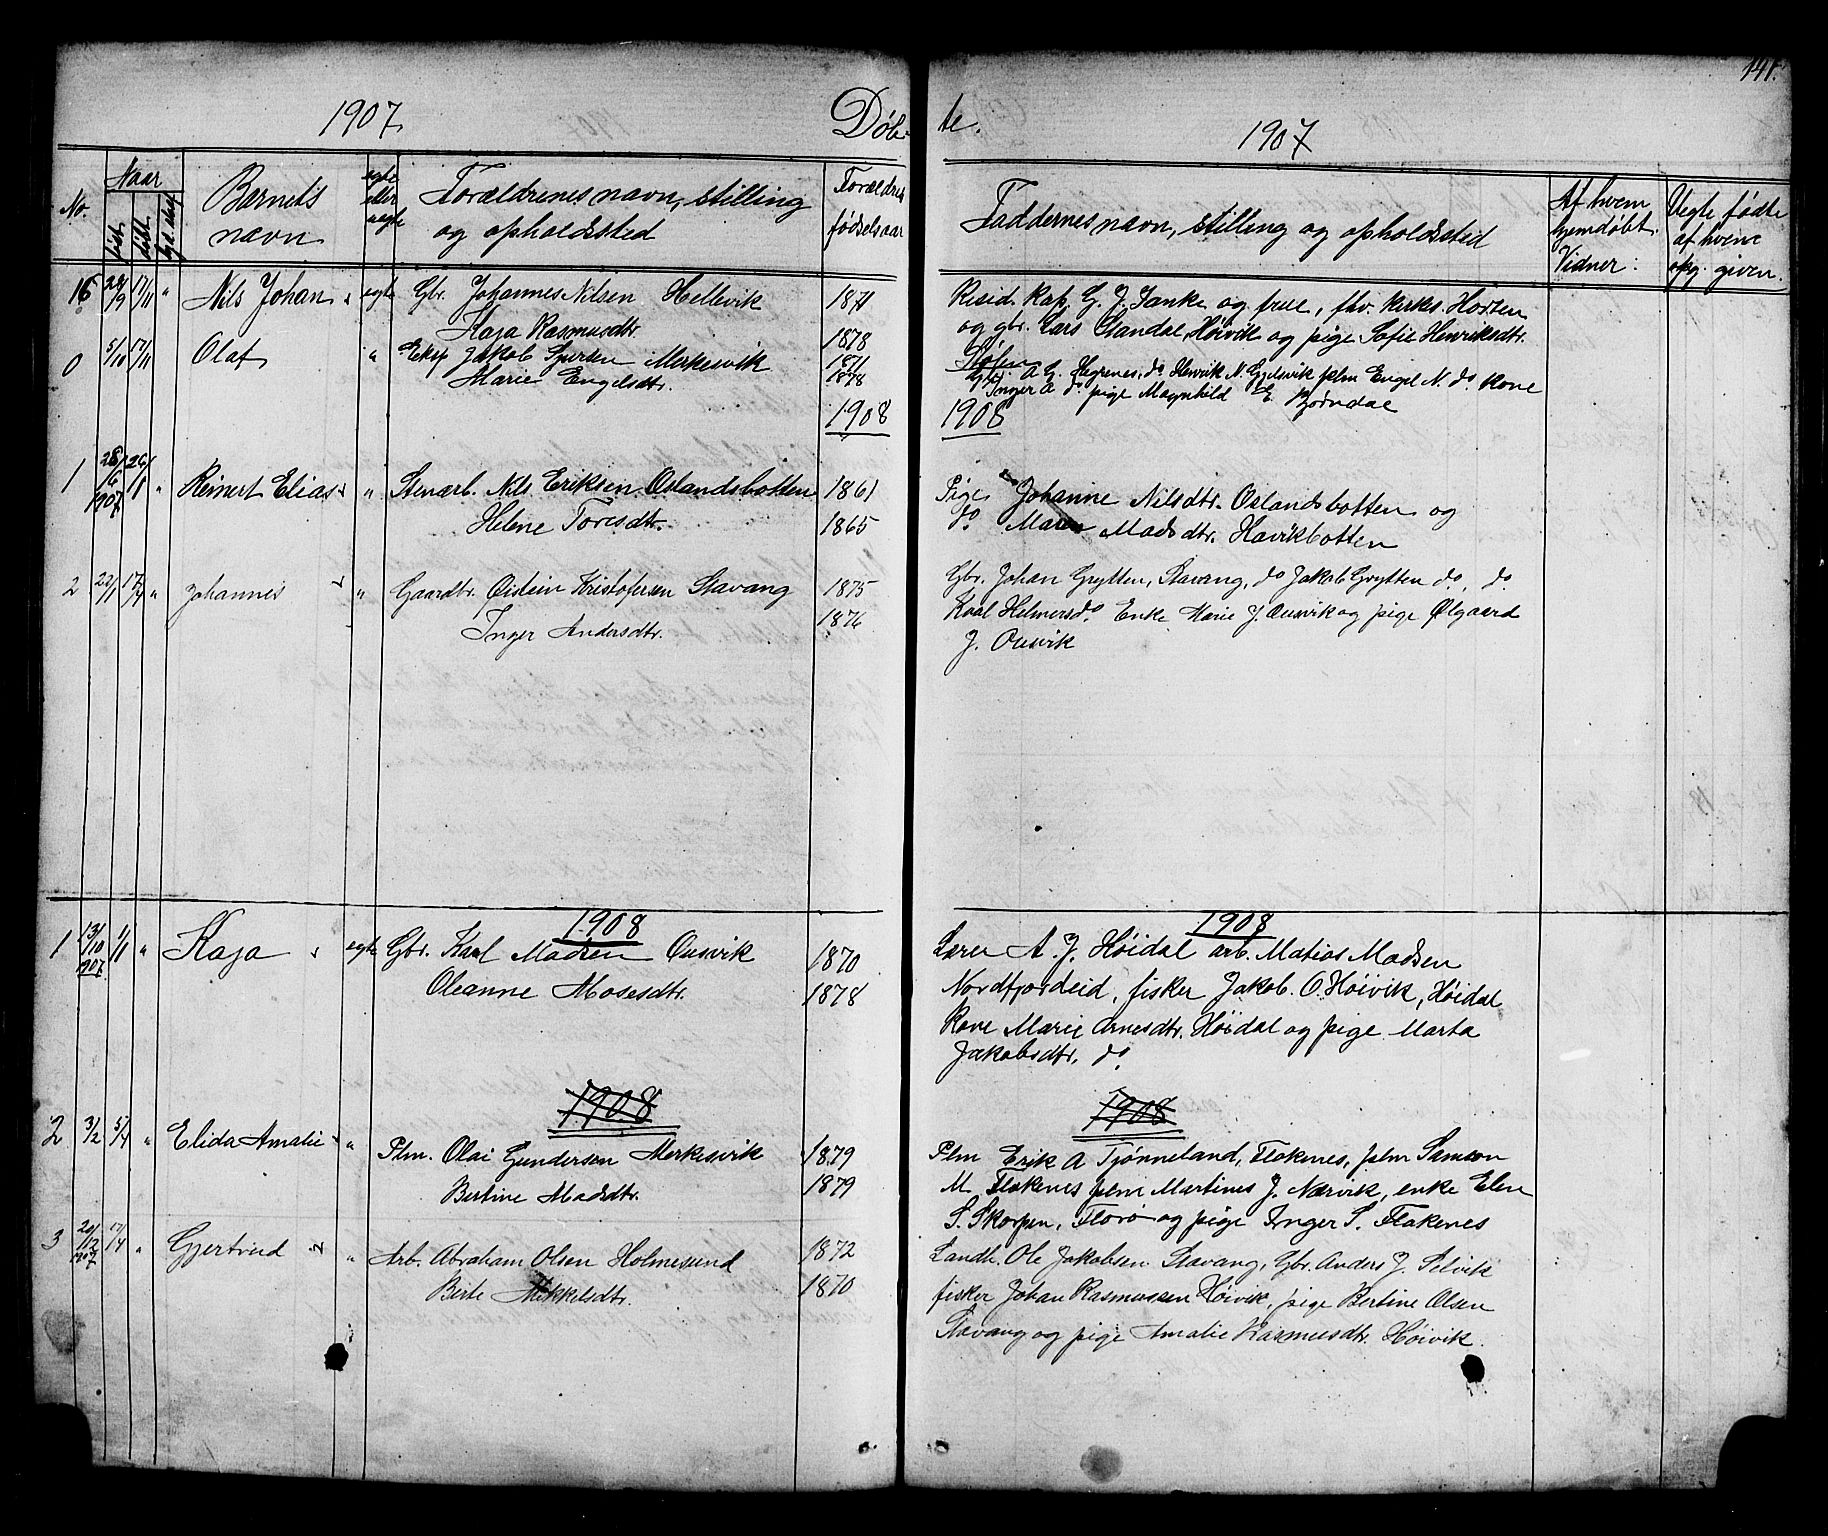 141.
1907. Døb- te. 1907
No. Naar Barnets navn egte eller uegte Forældrenes navn, stilling og opholdssted Forældrenes fødselsaar
Faddernes navn, stilling og opholdssted Af hvem hjemdøbt. Vidner: Uegte fødte af hvem opg. given.
født døbt
16 24/9 17/11 " Nils Johan egte Gbr. Johannes Nilsen Hellevik 1871
Kaja Rasmusdtr. 1878
Resid. Kap. G. J. Tanke og frue, fhv. kirkes. Horten
og gbr. Lars Standal, Høivik og pige Sofie Henriksdtr.
0 5/10 17/11 Olaf " Eksp Jakob Iversen Merkesvik 1871
Marie Engelsdtr. 1878
Gbr. A G. Hegrenes, do Henrik N. Gjelsvik plm Engel N. do kone
Inger A do pige Magnhild E. Bjørndal
1908 1908
1 28/6 1907 26/1 " Reinert Elias " Stenarb. Nils Eriksen Oslandsbotten 1861
Helene Toresdtr. 1865
Pige Johanne Nilsdtr. Oslandsbotten og
do. Maren Madsdtr. Høvikbotten
2 22/1 17/4 " Johannes " Gaardbr. Øistein Kristofersen Stavang 1875
Inger Andersdtr. 1876
Gbr. Johan Grytten, Stavang, do Jakob Grytten do, do.
Karl Helmers do. Enke Marie J. Ousvik og pige Ølgaard
J. Ousvik
1908 1908
1 13/10 1907 1/1 " Kaja egte Gbr. Karl Madsen Ousvik 1870
Oleanne Mosesdtr. 1878
Lærer A. J. Høidal arb. Matias Madsen
Nordfjordeid, fisker Jakob O Høivik, Høidal
Kone Marie Arnesdtr. Høidal og pige Marta
Jakobsdtr. do.
1908 1908
2 3/2 5/4 " Elida Amalie " Plm. Olai Gundersen Merkesvik 1879
Bertine Madsdtr. 1879
Plm Erik A Tjønneland, Flokenes, plm Samson
M. Flokenes plm Martines J. Nærvik, enke Elen
S. Skorpen, Florø og pige Inger S. Flokenes
3 20/12 1907 17/4 " Gjertrud " Arb. Abraham Olsen Holmesund 1872
Berte Mikkelsdtr. 1870
Landh. Ole Jakobsen Stavang, Gbr. Anders J. Selvik
fisker Johan Rasmussen Høivik, pige Bertine Olsen
Stavang og pige Amalie Rasmusdtr. Høivik.